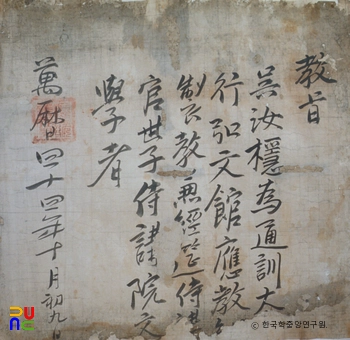 教旨
吳汝穩為通訓大
行弘文館應教
知製教兼經筵侍講
官世子侍講院文
學者
萬曆四十四年十月初九日
© 한국학중앙연구원